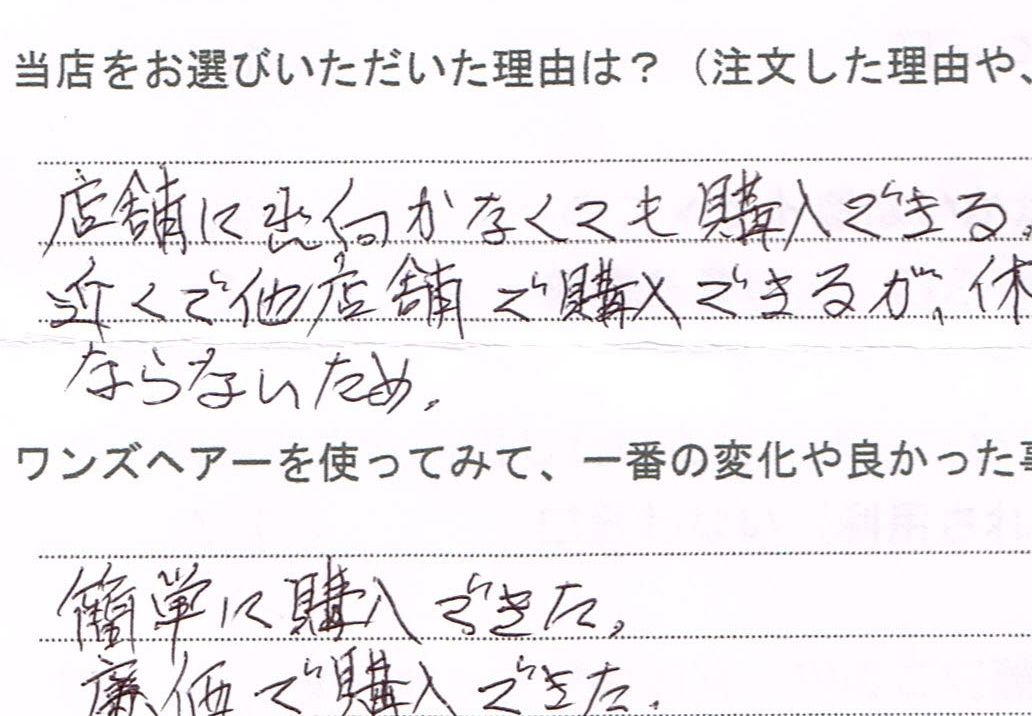 当店をお選びいただいた理由は？（注文した理由や、
店舗に出向かなくても購入できる。
近くで他店舗で購入できるが、休
ならないため。
ワンズヘアーを使ってみて、一番の変化や良かった事
簡単に購入できた。
廉価で購入できた。